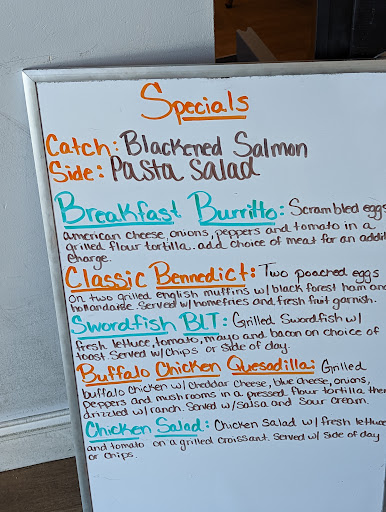 Specials
Catch: Blackened Salmon
Side: Pasta Salad
Breakfast Burrito: Scrambled eggs
american cheese, onions, peppers and tomato in a
grilled flour tortilla. add choice of meat for an addit
charge.
Classic Bennedict: Two poached eggs
on two grilled english muffins w/ black forest ham and
hollandaise. Served w/ homefries and fresh fruit garnish.
Swordfish BLT: Grilled Swordfish w/
fresh lettuce, tomato, mayo and bacon on choice of
toast Served w/ chips or side of day.
Buffalo Chicken Quesadilla: Grilled
buffalo chicken w/ cheddar cheese, blue cheese, onions,
peppers and mushrooms in a pressed flour tortilla then
drizzled w/ ranch. Served w/ salsa and sour cream.
Chicken Salad: Chicken Salad w/ fresh lettuce
and tomato on a grilled croissant. Served w/ side of day
or chips.